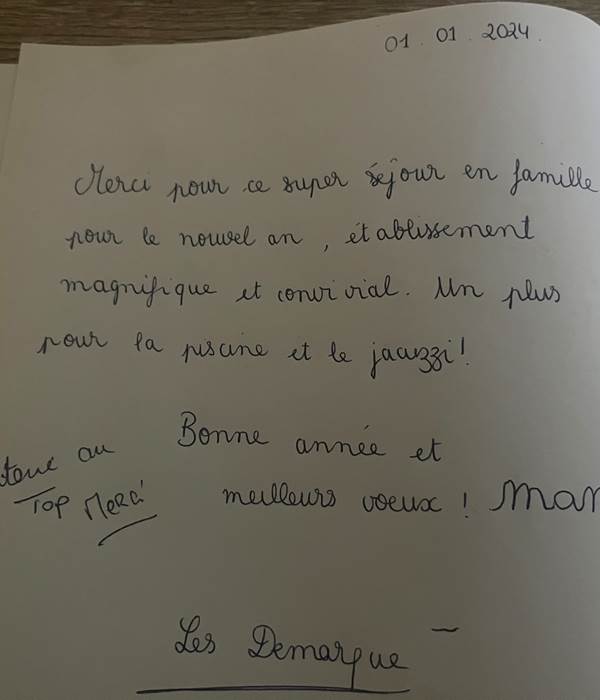 01.01.2024.
Merci pour ce super séjour en famille
pour le nouvel an, établissement
magnifique et convivial. Un plus
pour la piscine et le jacuzzi!
Bonne année et
meilleurs voeux!
au
Top Merci
Les Demarque